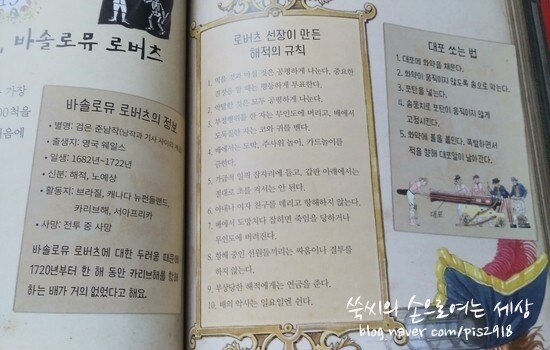 바솔로뮤 로버츠
가장
00척을
바솔로뮤 로버츠의 정보
• 별명: 검은 준남작(남작과 기사 사이의
• 출생지: 영국 웨일스
• 일생: 1682년~1722년
• 신분: 해적, 노예상
• 활동지: 브라질, 캐나다 뉴펀들랜드,
카리브해, 서아프리카
• 사망: 전투 중 사망
바솔로뮤 로버츠에 대한 두려움 때문에
1720년부터 한 해 동안 카리브해를 항해
하는 배가 거의 없었다고 해요.
로버츠 선장이 만든
해적의 규칙
1. 먹을 것과 마실 것은 공평하게 나눈다. 중요한
결정을 할 때는 평등하게 투표한다.
2. 약탈한 것은 모두 공평하게 나눈다.
3. 부정행위를 한 자는 무인도에 버리고, 배에서
도둑질한 자는 코와 귀를 벤다.
4. 배에서는 도박, 주사위 놀이, 카드놀이를
금한다.
5. 가급적 일찍 잠자리에 들고, 갑판 아래에서는
절대로 초를 켜서는 안 된다.
6. 아내나 여자 친구를 데리고 항해하지 않는다.
7. 배에서 도망치다 잡히면 죽임을 당하거나
무인도에 버려진다.
8. 항해 중인 선원들끼리는 싸움이나 결투를
하지 않는다.
9. 부상당한 해적에게는 연금을 준다.
10. 배의 악사는 일요일엔 쉰다.
대포 쏘는 법
1. 대포에 화약을 채운다.
2. 화약이 움직이지 않도록 솜으로 막는다.
3. 포탄을 넣는다.
4. 솜뭉치로 포탄이 움직이지 않게
고정시킨다.
5. 화약에 불을 붙인다. 폭발하면서
적을 향해 대포알이 날아간다.
대포
쑥씨의 손으로여는 세상
blog.naver.com/pis2918